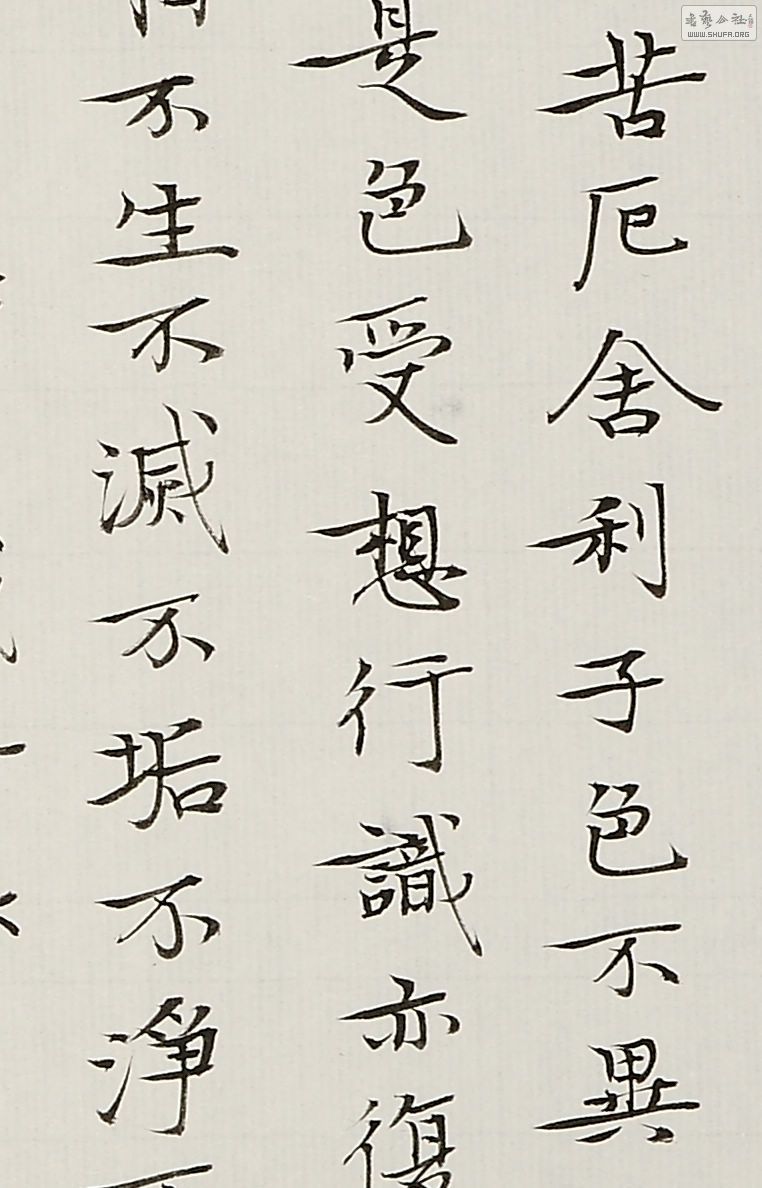 苦厄舍利子色不異
是色受想行識亦復
不生不滅不垢不淨
WWW.SHUFA.ORG